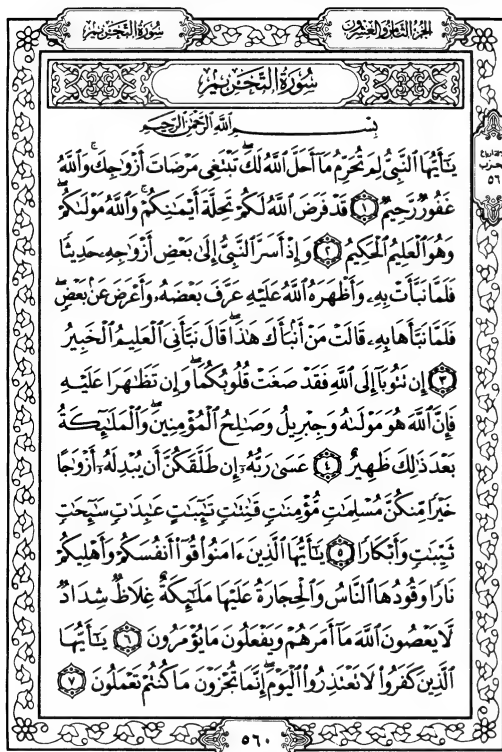 سُورَةُ التَّحْرِيمِ
الجزء الثامن والعشرون
سُورَةُ التَّحْرِيمِ
بِسْمِ اللَّهِ الرَّحْمَٰنِ الرَّحِيمِ
يَٰٓأَيُّهَا ٱلنَّبِىُّ لِمَ تُحَرِّمُ مَآ أَحَلَّ ٱللَّهُ لَكَ ۖ تَبْتَغِى مَرْضَاتَ أَزْوَٰجِكَ ۚ وَٱللَّهُ
غَفُورٌ رَّحِيمٌ ١ قَدْ فَرَضَ ٱللَّهُ لَكُمْ تَحِلَّةَ أَيْمَٰنِكُمْ ۚ وَٱللَّهُ مَوْلَىٰكُمْ ۖ
وَهُوَ ٱلْعَلِيمُ ٱلْحَكِيمُ ٢ وَإِذْ أَسَرَّ ٱلنَّبِىُّ إِلَىٰ بَعْضِ أَزْوَٰجِهِۦ حَدِيثًا
فَلَمَّا نَبَّأَتْ بِهِۦ وَأَظْهَرَهُ ٱللَّهُ عَلَيْهِ عَرَّفَ بَعْضَهُۥ وَأَعْرَضَ عَنۢ بَعْضٍ ۖ
فَلَمَّا نَبَّأَهَا بِهِۦ قَالَتْ مَنْ أَنۢبَأَكَ هَٰذَا ۖ قَالَ نَبَّأَنِىَ ٱلْعَلِيمُ ٱلْخَبِيرُ
٣ إِن تَتُوبَآ إِلَى ٱللَّهِ فَقَدْ صَغَتْ قُلُوبُكُمَا ۖ وَإِن تَظَٰهَرَا عَلَيْهِ
فَإِنَّ ٱللَّهَ هُوَ مَوْلَىٰهُ وَجِبْرِيلُ وَصَٰلِحُ ٱلْمُؤْمِنِينَ ۖ وَٱلْمَلَٰٓئِكَةُ
بَعْدَ ذَٰلِكَ ظَهِيرٌ ٤ عَسَىٰ رَبُّهُۥٓ إِن طَلَّقَكُنَّ أَن يُبْدِلَهُۥٓ أَزْوَٰجًا
خَيْرًا مِّنكُنَّ مُسْلِمَٰتٍ مُّؤْمِنَٰتٍ قَٰنِتَٰتٍ تَٰٓئِبَٰتٍ عَٰبِدَٰتٍ سَٰٓئِحَٰتٍ
ثَيِّبَٰتٍ وَأَبْكَارًا ٥ يَٰٓأَيُّهَا ٱلَّذِينَ ءَامَنُوا۟ قُوٓا۟ أَنفُسَكُمْ وَأَهْلِيكُمْ
نَارًا وَقُودُهَا ٱلنَّاسُ وَٱلْحِجَارَةُ عَلَيْهَا مَلَٰٓئِكَةٌ غِلَاظٌ شِدَادٌ
لَّا يَعْصُونَ ٱللَّهَ مَآ أَمَرَهُمْ وَيَفْعَلُونَ مَا يُؤْمَرُونَ ٦ يَٰٓأَيُّهَا
ٱلَّذِينَ كَفَرُوا۟ لَا تَعْتَذِرُوا۟ ٱلْيَوْمَ ۖ إِنَّمَا تُجْزَوْنَ مَا كُنتُمْ تَعْمَلُونَ ٧
حزب
٥٦
٥٦٠